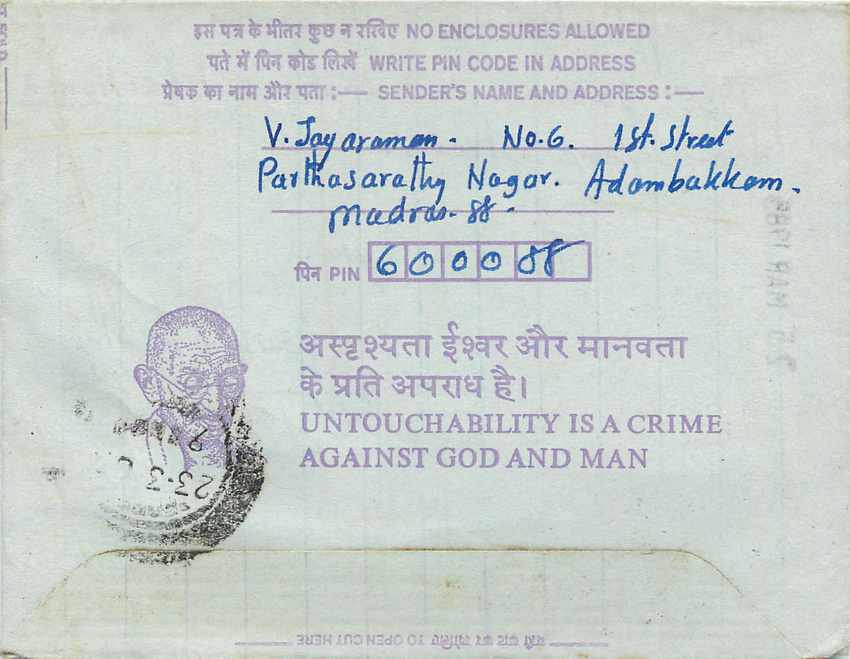 इस पत्र के भीतर कुछ न रखिए NO ENCLOSURES ALLOWED
पते में पिन कोड लिखें WRITE PIN CODE IN ADDRESS
प्रेषक का नाम और पता :— SENDER'S NAME AND ADDRESS :—
V. Jayaraman. No.6. 1st. Street
Parthasarathy Nagar. Adambakkam.
Madras-88.
पिन PIN 6000 88
अस्पृश्यता ईश्वर और मानवता
के प्रति अपराध है।
UNTOUCHABILITY IS A CRIME
AGAINST GOD AND MAN
23-3
TO OPEN CUT HERE